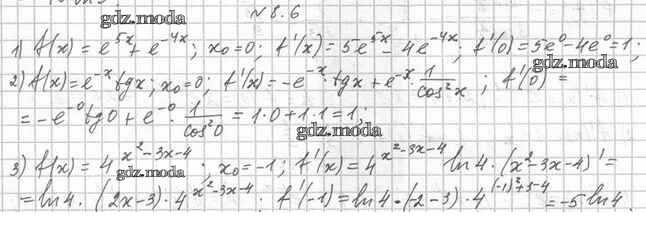 №8.6
gdz.moda
1) f(x) = e^{5x} + e^{-4x}; x₀=0; f'(x) = 5e^{5x} - 4e^{-4x}; f'(0) = 5e⁰ - 4e⁰ = 1;
gdz.moda
2) f(x) = e^{-x} tgx; x₀=0; f'(x) = -e^{-x} · tgx + e^{-x} · \frac{1}{cos²x}; f'(0) =
= -e^{-0} tg0 + e^{-0} · \frac{1}{cos²0} = 1·0+1·1=1;
gdz.moda
3) f(x) = 4^{x²-3x-4}; x₀=-1; f'(x) = 4^{x²-3x-4} ln4·(x²-3x-4)' =
gdz.moda
= ln4·(2x-3)·4^{x²-3x-4}. f'(-1) = ln4·(-2-3)·4^{(-1)²+3-4} = -5 ln4.
gdz.moda